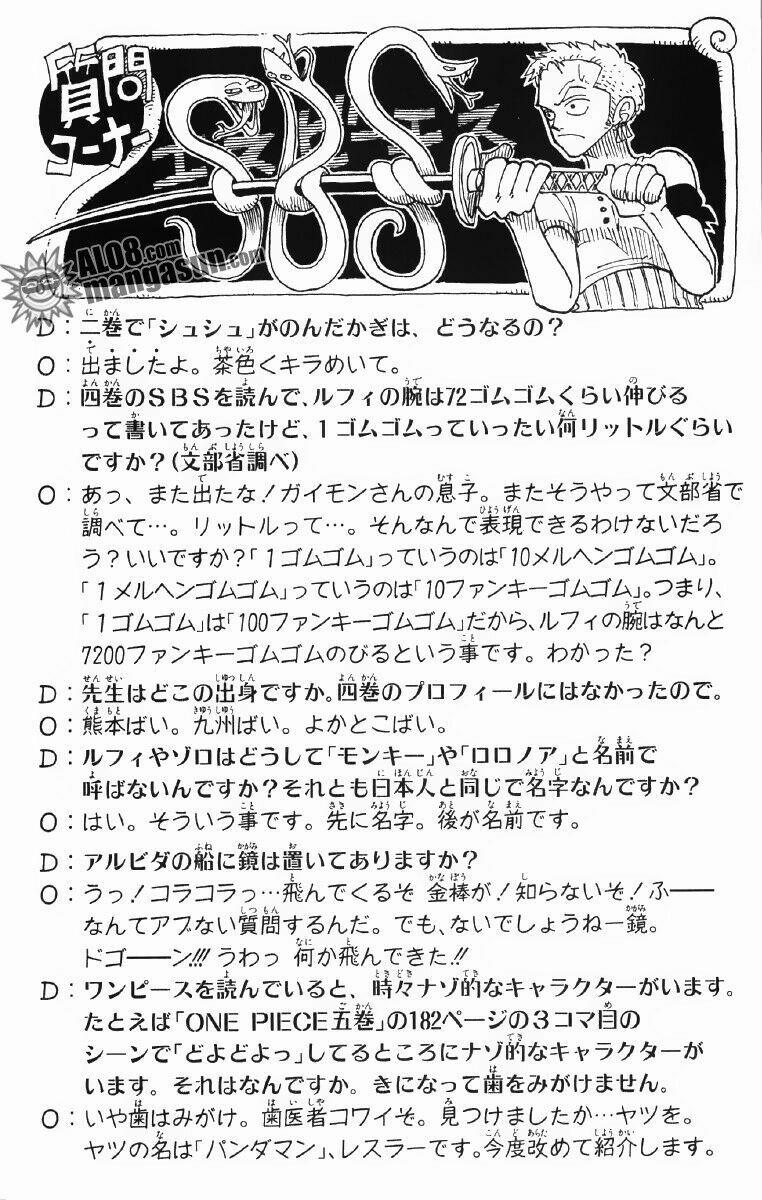 質問
コーナー
SBS
エスビーエス
AL08.com
mangasun.com
D：二巻で「シュシュ」がのんだかぎは、どうなるの？
O：出ましたよ。茶色くキラめいて。
D：四巻のSBSを読んで、ルフィの腕は72ゴムゴムくらい伸びる
って書いてあったけど、1ゴムゴムっていったい何リットルぐらい
ですか？(文部省調べ)
O：あっ、また出たな！ガイモンさんの息子。またそうやって文部省で
調べて…。リットルって…。そんなんで表現できるわけないだろ
う？いいですか？「1ゴムゴム」っていうのは「10メルヘンゴムゴム」。
「1メルヘンゴムゴム」っていうのは「10ファンキーゴムゴム」。つまり、
「1ゴムゴム」は「100ファンキーゴムゴム」だから、ルフィの腕はなんと
7200ファンキーゴムゴムのびるという事です。わかった？
D：先生はどこの出身ですか。四巻のプロフィールにはなかったので。
O：熊本ばい。九州ばい。よかとこばい。
D：ルフィやゾロはどうして「モンキー」や「ロロノア」と名前で
呼ばないんですか？それとも日本人と同じで名字なんですか？
O：はい。そういう事です。先に名字。後が名前です。
D：アルビダの船に鏡は置いてありますか？
O：うっ！コラコラっ…飛んでくるぞ 金棒が！知らないぞ！ふーー
なんてアブない質問するんだ。でも、ないでしょうねー鏡。
ドゴーーン!!! うわっ 何か飛んできた!!
D：ワンピースを読んでいると、時々ナゾ的なキャラクターがいます。
たとえば「ONE PIECE五巻」の182ページの3コマ目の
シーンで「どよどよっ」してるところにナゾ的なキャラクターが
います。それはなんですか。きになって歯をみがけません。
O：いや歯はみがけ。歯医者コワイぞ。見つけましたか…ヤツを。
ヤツの名は「パンダマン」、レスラーです。今度改めて紹介します。